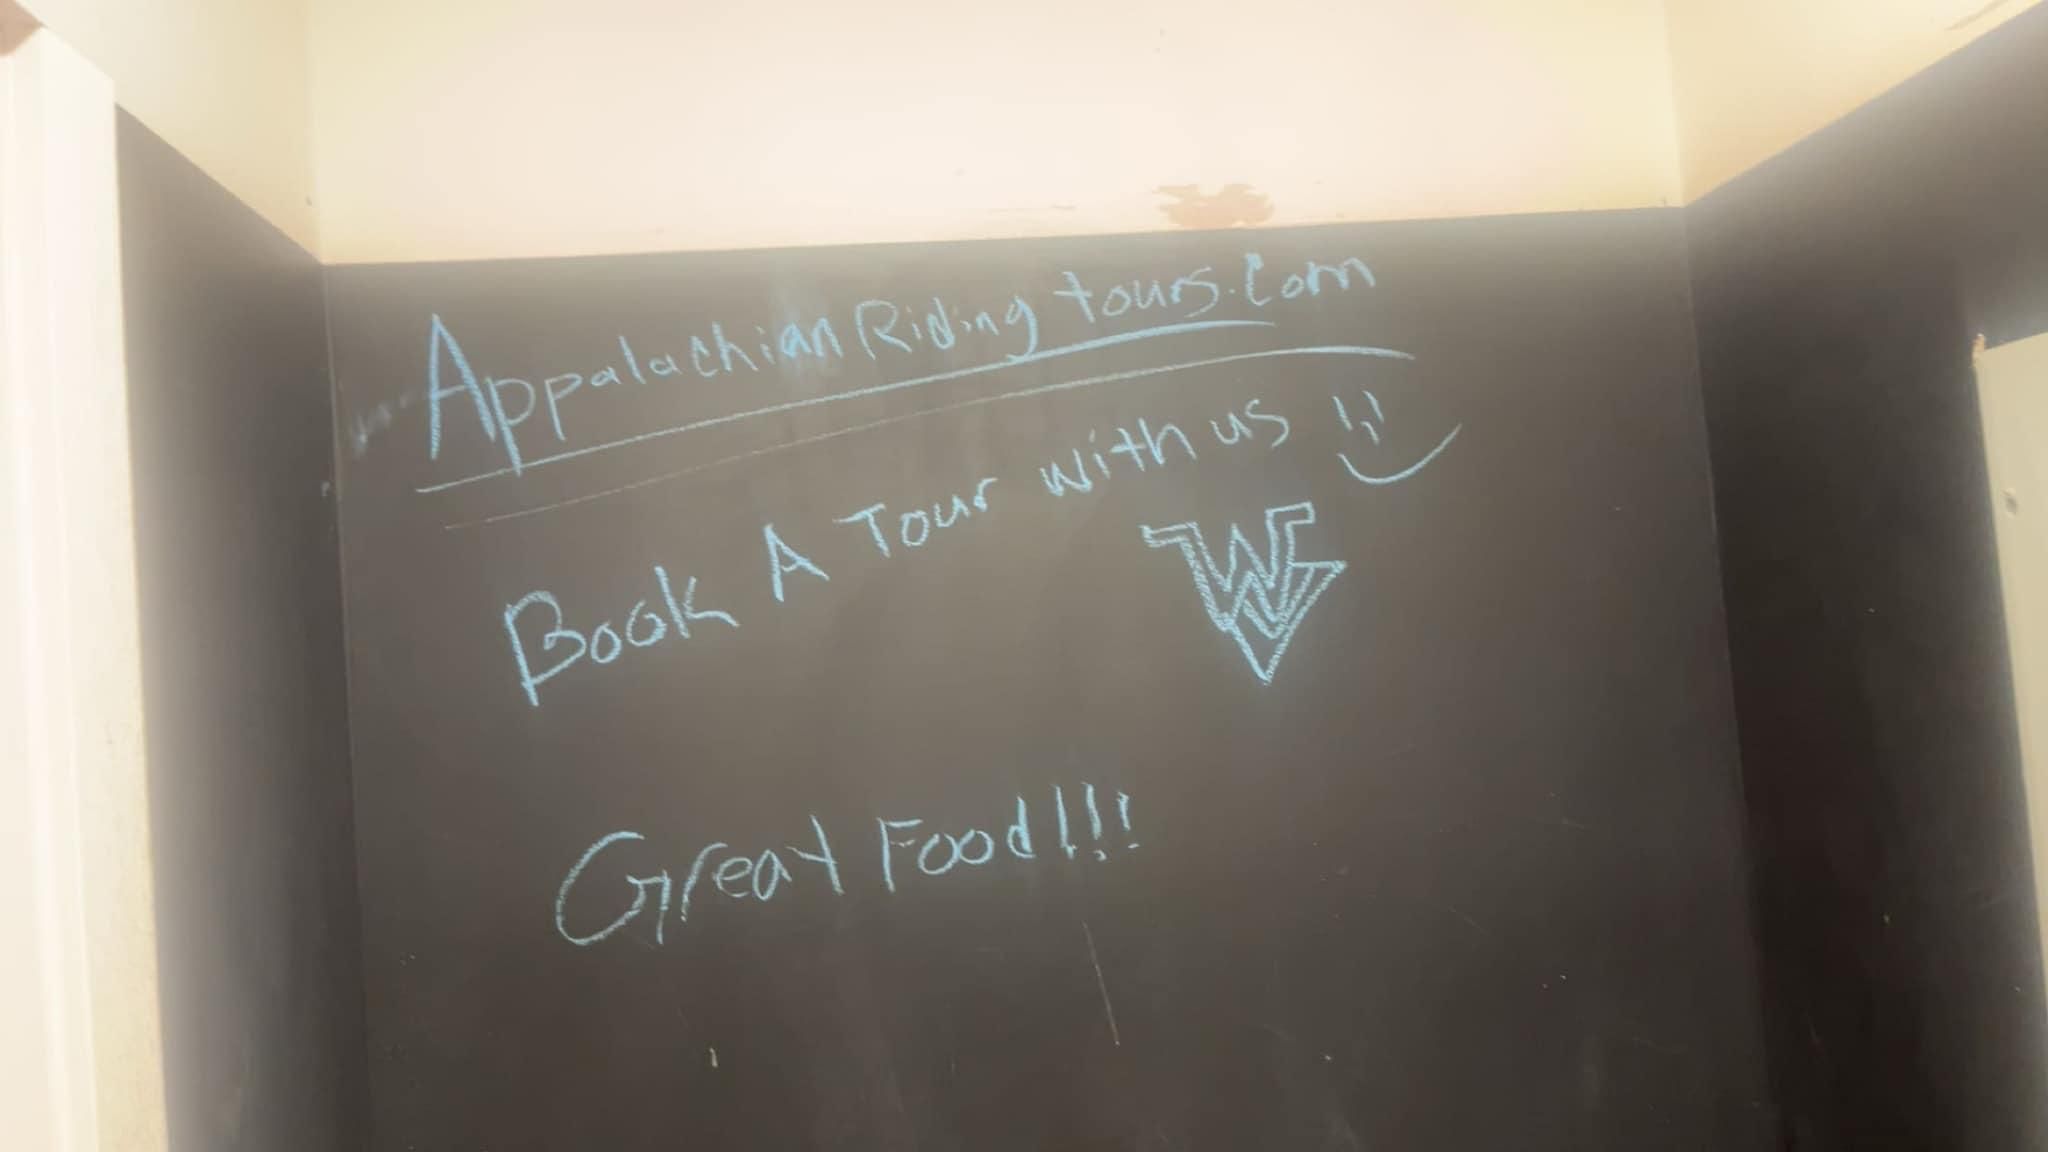 AppalachianRidingtours.Com
Book A Tour with us
WV
Great Food!!!